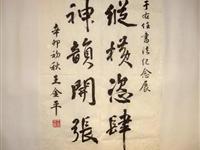 于右任書法紀念展
縱橫恣肆
神韻開張
辛卯初秋王金平